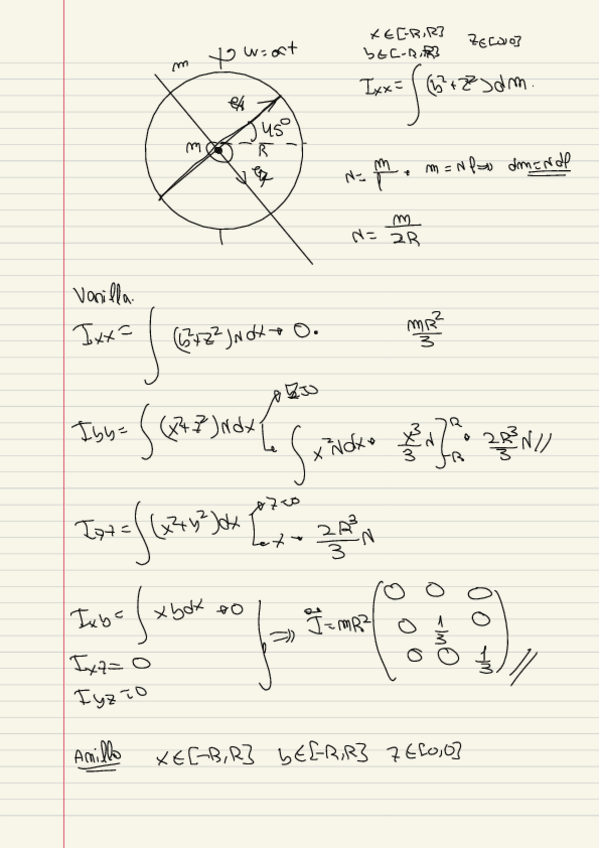 x∈[-R,R]
b∈[-R,R] z∈[0,0]
m w=αt
Ixx= ∫(b²+z²)dm.
45°
m R
N= m/l · m=Nl ⇒ dm=Ndl
N= m/2R
Varilla.
Ixx= ∫(b²+z²)Ndx → 0. mR²/3
Ibb= ∫(x²+z²)Ndx ∫x²Ndx · x³/3 N]R-R · 2R³/3 N//
Izz= ∫(x²+b²)dx z=0
x → 2R³/3 N
Ixb= ∫xbdx → 0
Ixz= 0
Iyz=0
⇒ I=mR² (0 0 0
0 1/3 0
0 0 1/3)//
Anillo x∈[-R,R] b∈[-R,R] z∈[0,0]